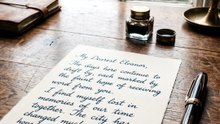 My Dearest Eleanor,
The days here continue to
drift by, each marked by
the quiet hope of receiving
word from you.
I find myself lost in
memories of our time
together. The city has
changed much